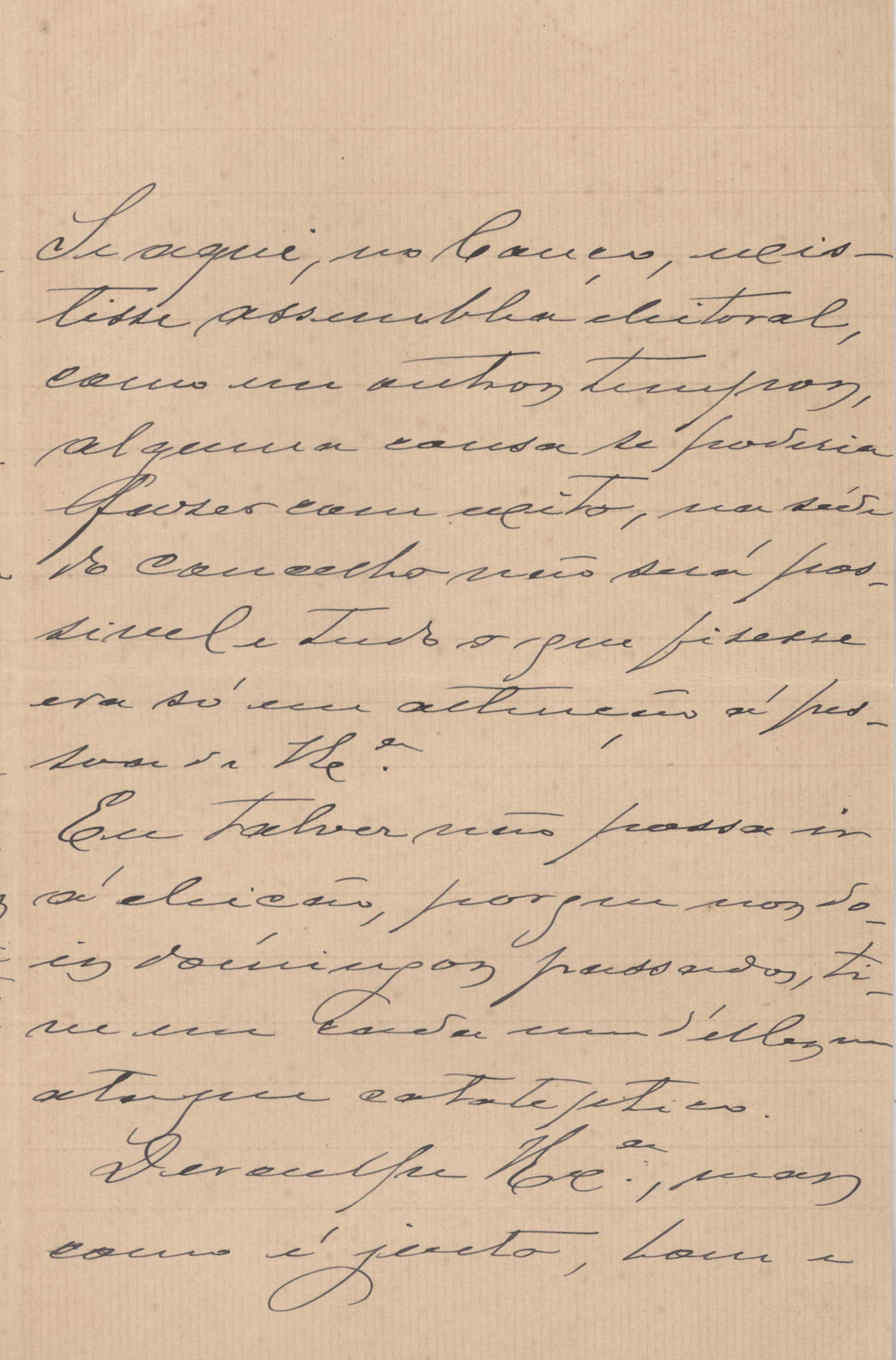 Se aqui, no Couço, exis-
tisse assembléa eleitoral,
como em outros tempos,
alguma cousa se poderia
fazer com exito, na séde
do concelho não será pos-
sivel e tudo o que fizesse
era só em attenção á pes-
soa de V Exª.
Eu talvez não possa ir
á eleição, porque nos do-
is domingos passados, ti-
ve em cada um d'elles um
ataque cataleptico.
Desculpe V Exª., mas
como é justo, bom e